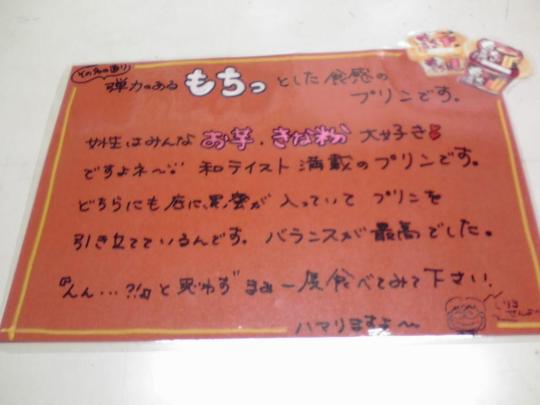 その名の通り
弾力のある もちっ とした食感の
プリンです。
女性はみんな お芋、きな粉 大好き!
ですよネ〜 和テイスト満載のプリンです。
どちらにも底に黒蜜が入っていて プリンを
引き立てているんです。バランスが最高でした。
『んん…?!』と思わず まぁ一度食べてみて下さい!
ハマりますよ〜